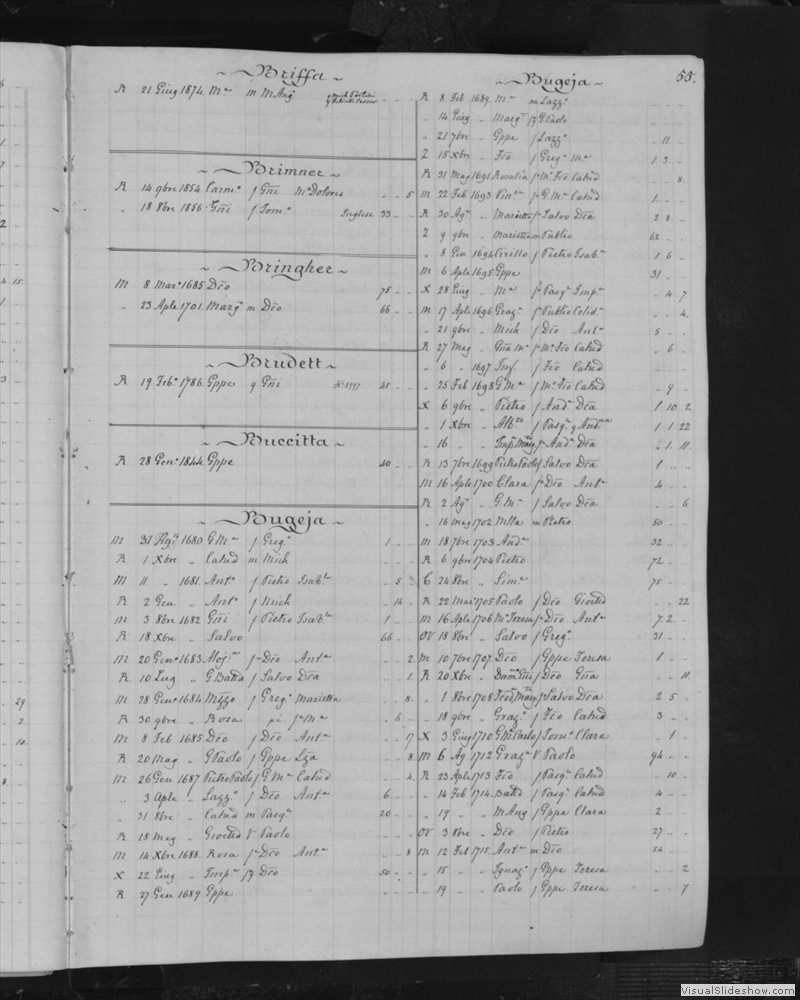 55.
~ Briffa ~
R 21 Giug 1874. Mª m M Ang
~ Brimner ~
R 14 9bre 1854 Carmª f Gñi Mª Dolores 5
" 18 8bre 1856 Gñi f Tomª Inglese 33
~ Bringher ~
M 8 Marº 1685 Dẽo 75
" 23 Aple 1701. Margª m Dẽo 66
~ Brudett ~
R 19 Febº 1786. Gppe q Gñi 45
~ Buccitta ~
R 28 Genº 1844 Gppe 40
~ Bugeja ~
M 31 1680 G Mª f Gregº 1
R 1 Xbre " Catnd m Mich
M 11 " 1681. Antª f Pietro Isabª 5
R 2 Gen " Antª f Mich 14
M 3 8bre 1682 Gñi f Pietro Isabª 1
R 18 Xbre " Salvo 66
M 20 Genº 1683 f Dẽo Antª 2
R 10 Lug " G Batta f Salvo Dẽa 1
M 28 Genº 1684 f Gregº Marietta 8
R 30 9bre " Rosa f Mª 6
M 8 Feb 1685 Dẽo f Dẽo Antª 17
R 20 Mag " G Paolo f Gppe 8
M 26 Gen 1687 Pietro Paolo f G Mª Catnd 4
" 3 Aple " Lazzº f Dẽo Antª 6
" 31 8bre " Catnd m Pasqª 20
R 18 Mag " V Paolo
M 14 Xbre 1688. Rosa f Dẽo Antª 8
X 22 Giug " Impª f Dẽo 50
R 27 Gen 1689 Gppe
~ Bugeja ~
R 8 Feb 1689. Mª m Lazzº
" 14 Giug " Margª Paolo
" 21 7bre " Gppe f Lazzº 11
Z 15 Xbre " Fẽo f Gregº Mª 1 3
R 31 Mag 1691 Rosalia f Mº Fẽo Catnd 8
M 22 Feb 1693 f G Mª Catnd 1
R 30 Agº " Marietta f Salvo Dẽa 2 8
Z 9 9bre " Marietta m Publio 62
" 8 Gen 1694 Cirillo f Pietro Isabª 1 6
M 6 Aple 1695 Gppe 31
X 28 Giug " Mª f Pasqª Impª 4 7
M 17 Aple 1696 Grazª f Publio 4
" 21 9bre " Mich f Dẽo Antª 5
R 27 Mag " Gña Mª f Mº Fẽo Catnd 6
" 6 " 1697 Inf f Fẽo Catnd
" 25 Feb 1698 G Mª f Mº Fẽo Catnd 9
X 6 9bre " Pietro f Andª Dẽa 1 10 2
" 1 Xbre " f Pasqª 1 1 22
" 16 " f Andª Dẽa 1 11
R 13 7bre 1699 f Salvo Dẽa 1
M 16 Aple 1700 Clara f Dẽo Antª 4
R 2 Agº " G Mª f Salvo Dẽa 6
" 16 Mag 1702 m Pietro 50
M 18 7bre 1703 Andª 32
R 6 9bre 1704 Pietro 72
C 24 8bre " Simª 75
R 22 Marº 1705 Paolo f Dẽo 22
M 16 Aple 1706 Mª Teresa f Dẽo Antª 7 2
OV 18 8bre " Salvo f Gregº 31
M 10 7bre 1707. Dẽo f Gppe Teresa 1
R 20 Xbre " f Dẽo Gña 11
" 1 8bre 1708 f Salvo Dẽa 2 5
" 18 9bre " Grazª f Fẽo Catnd 3
X 3 Giug 1710 G M Carlo f Tomª Clara 1
M 6 Ag 1712 Grazª V Paolo 94
R 23 Aple 1713 Fẽo f Pasqª Catnd 10
" 14 Feb 1714. Batta f Pasqª Catnd 4
" 19 " " M Ang f Gppe Clara 2
OV 3 8bre " Dẽo f Pietro 27
M 12 Feb 1715. Antª m Dẽo 54
" 15 " " Ignazº f Gppe Teresa 2
" 19 " Paolo f Gppe Teresa 7
VisualSlideshow.com